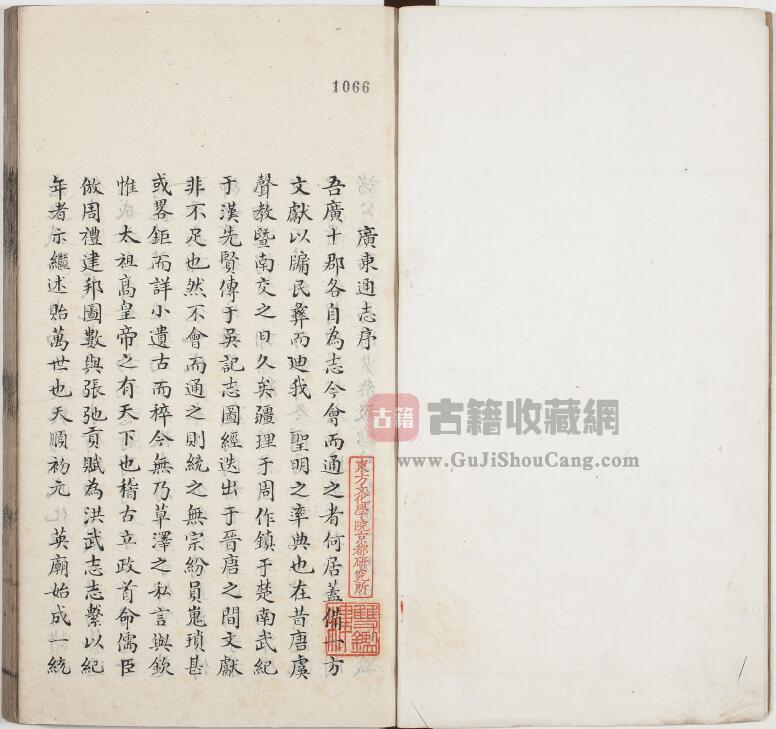 1066
廣東通志序
吾廣十郡各自為志今會而通之者何居蓋備一方
文獻以牖民彝而迪我 聖明之率典也在昔唐虞
聲教暨南交之日久矣疆理于周作鎮于楚南武紀
于漢先賢傳于吳記志圖經迭出于晉唐之間文獻
非不足也然不會而通之則統之無宗紛員嵬瑣甚
或畧鉅而詳小遺古而稡今無乃草澤之私言與欽
惟 太祖高皇帝之有天下也稽古立政首命儒臣
倣周禮建邦圖數與張弛貢賦為洪武志志繫以紀
年者示繼述貽萬世也天順初元 英廟始成一統
東方文化學院京都研究所
古籍 古籍收藏網
www.GuJiShouCang.com